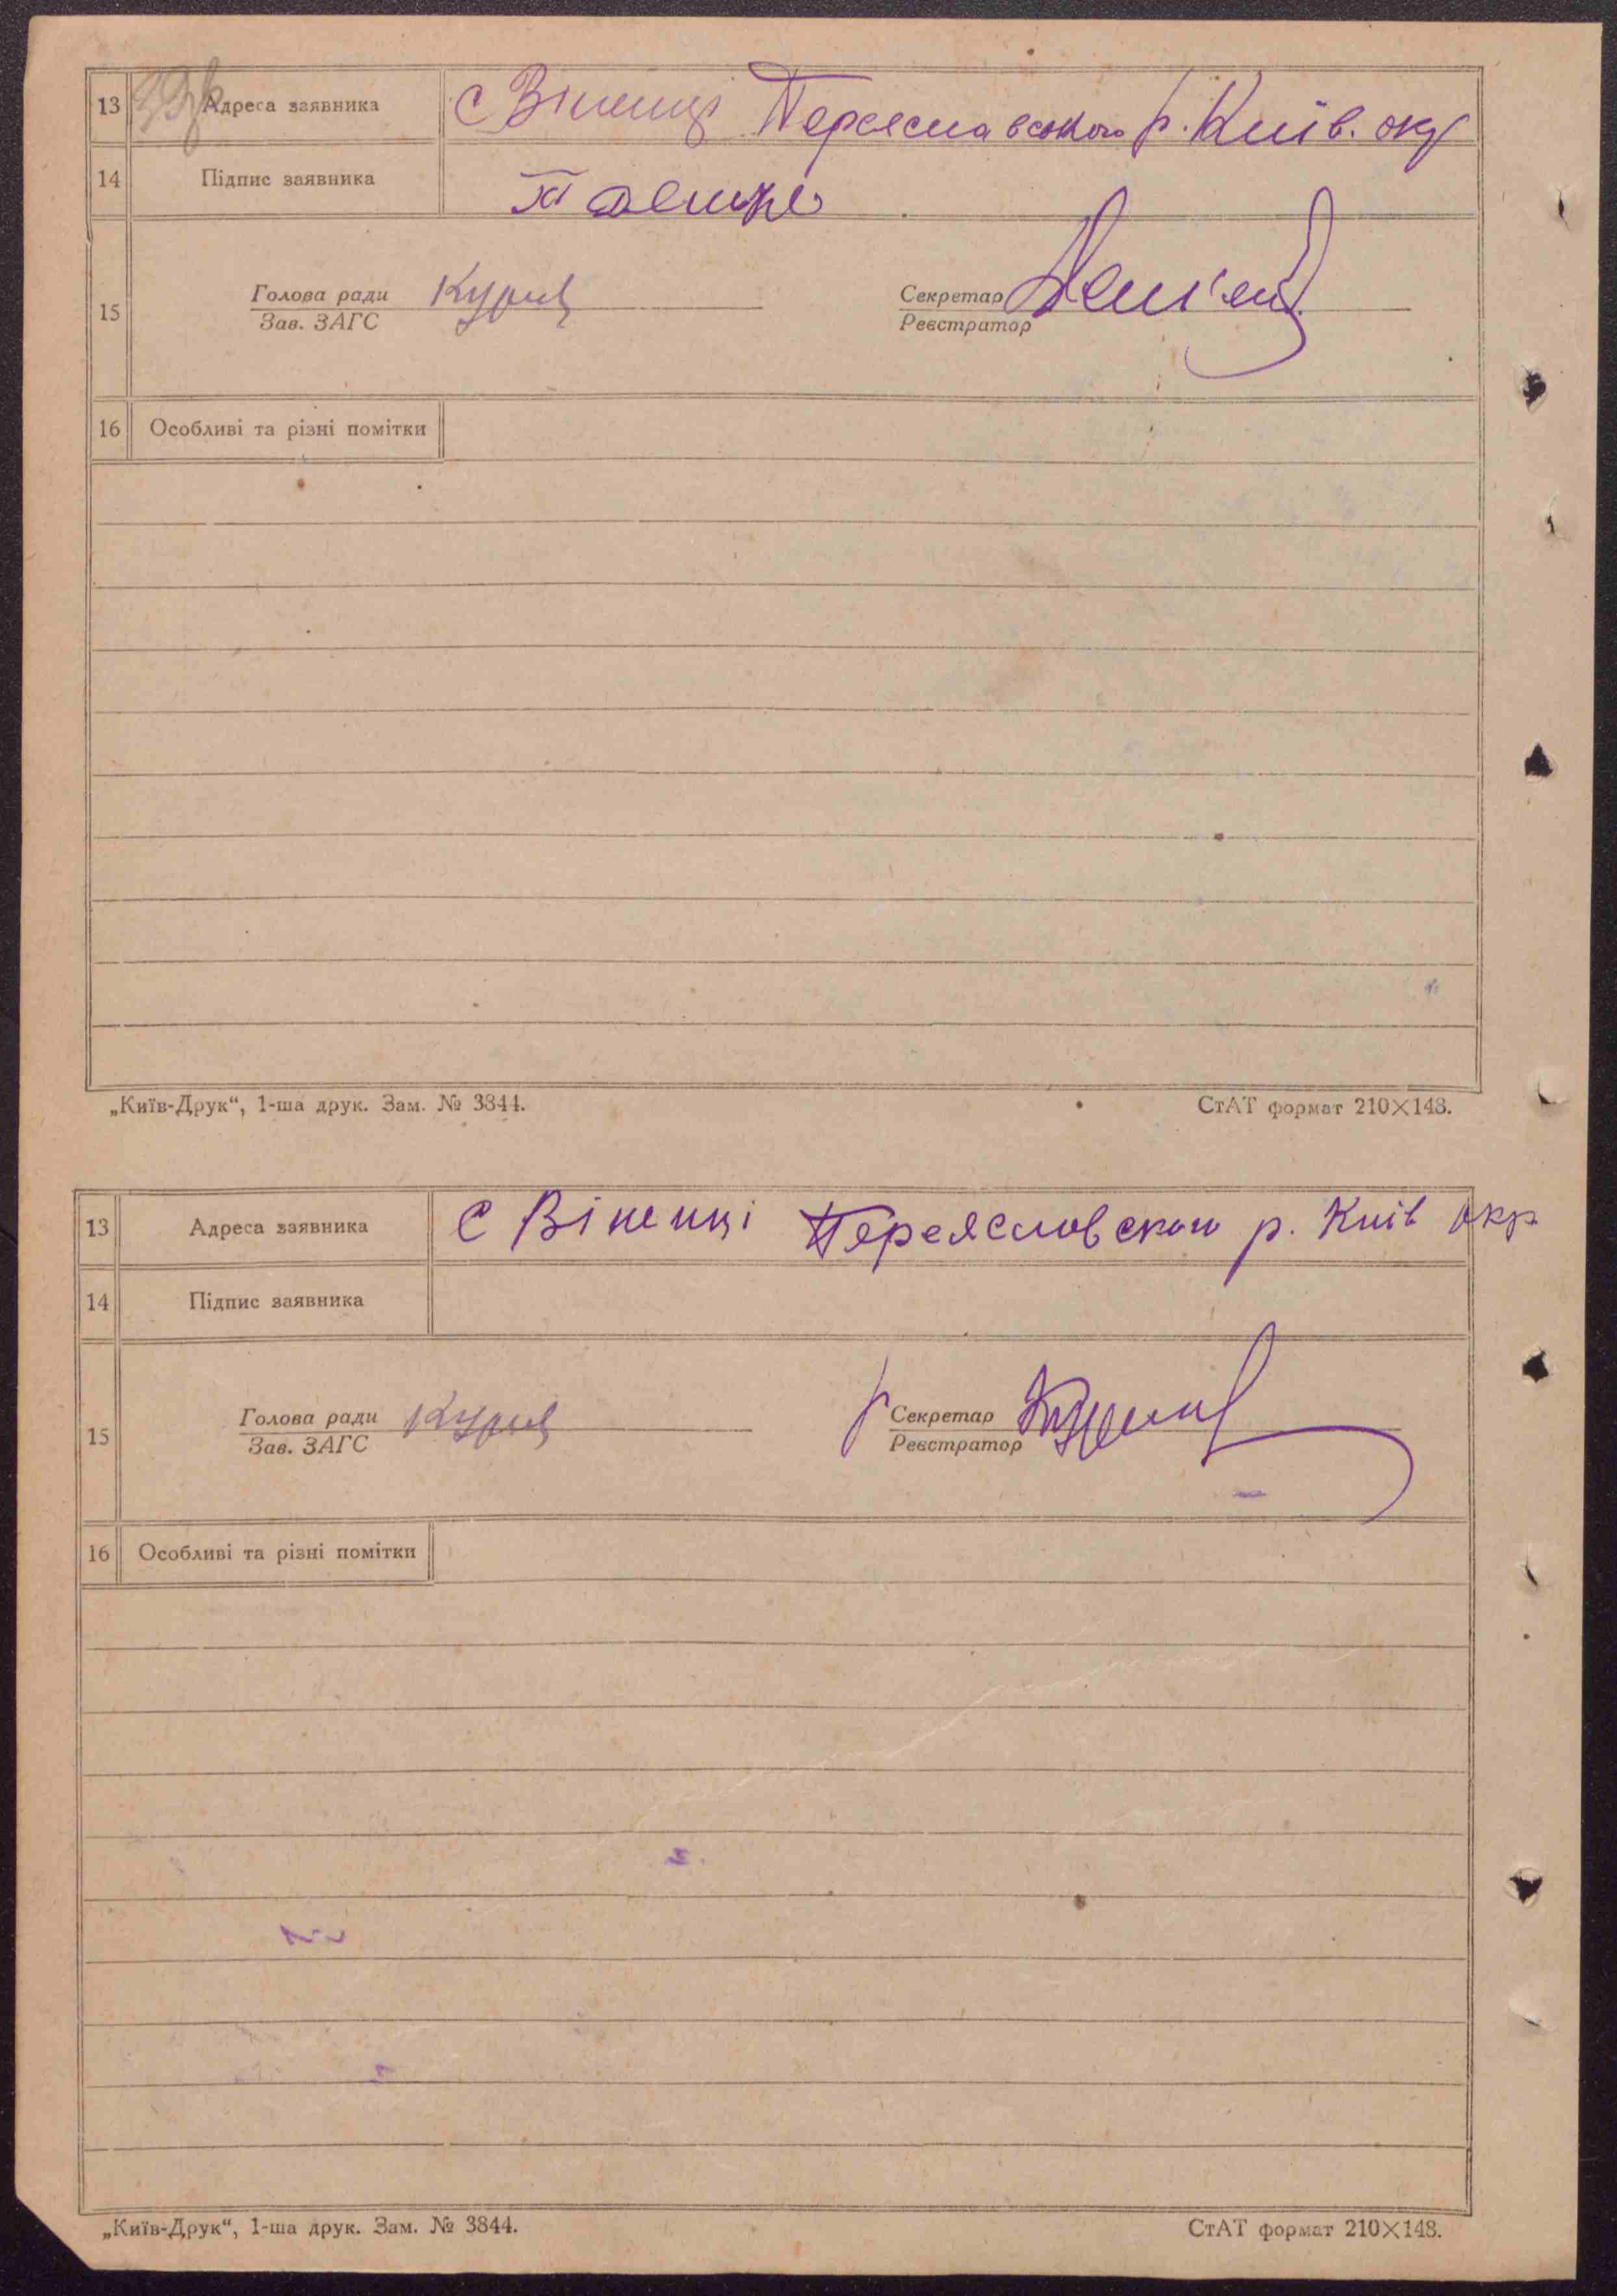 13 Адреса заявника с Віненці Переяславського р. Київ. окр
14 Підпис заявника
15 Голова ради Секретар
Зав. ЗАГС Реєстратор
16 Особливі та різні помітки
„Київ-Друк“, 1-ша друк. Зам. № 3844. СтАТ формат 210×148.
13 Адреса заявника с Віненці Переясловского р. Київ окр
14 Підпис заявника
15 Голова ради Секретар
Зав. ЗАГС Реєстратор
16 Особливі та різні помітки
„Київ-Друк“, 1-ша друк. Зам. № 3844. СтАТ формат 210×148.